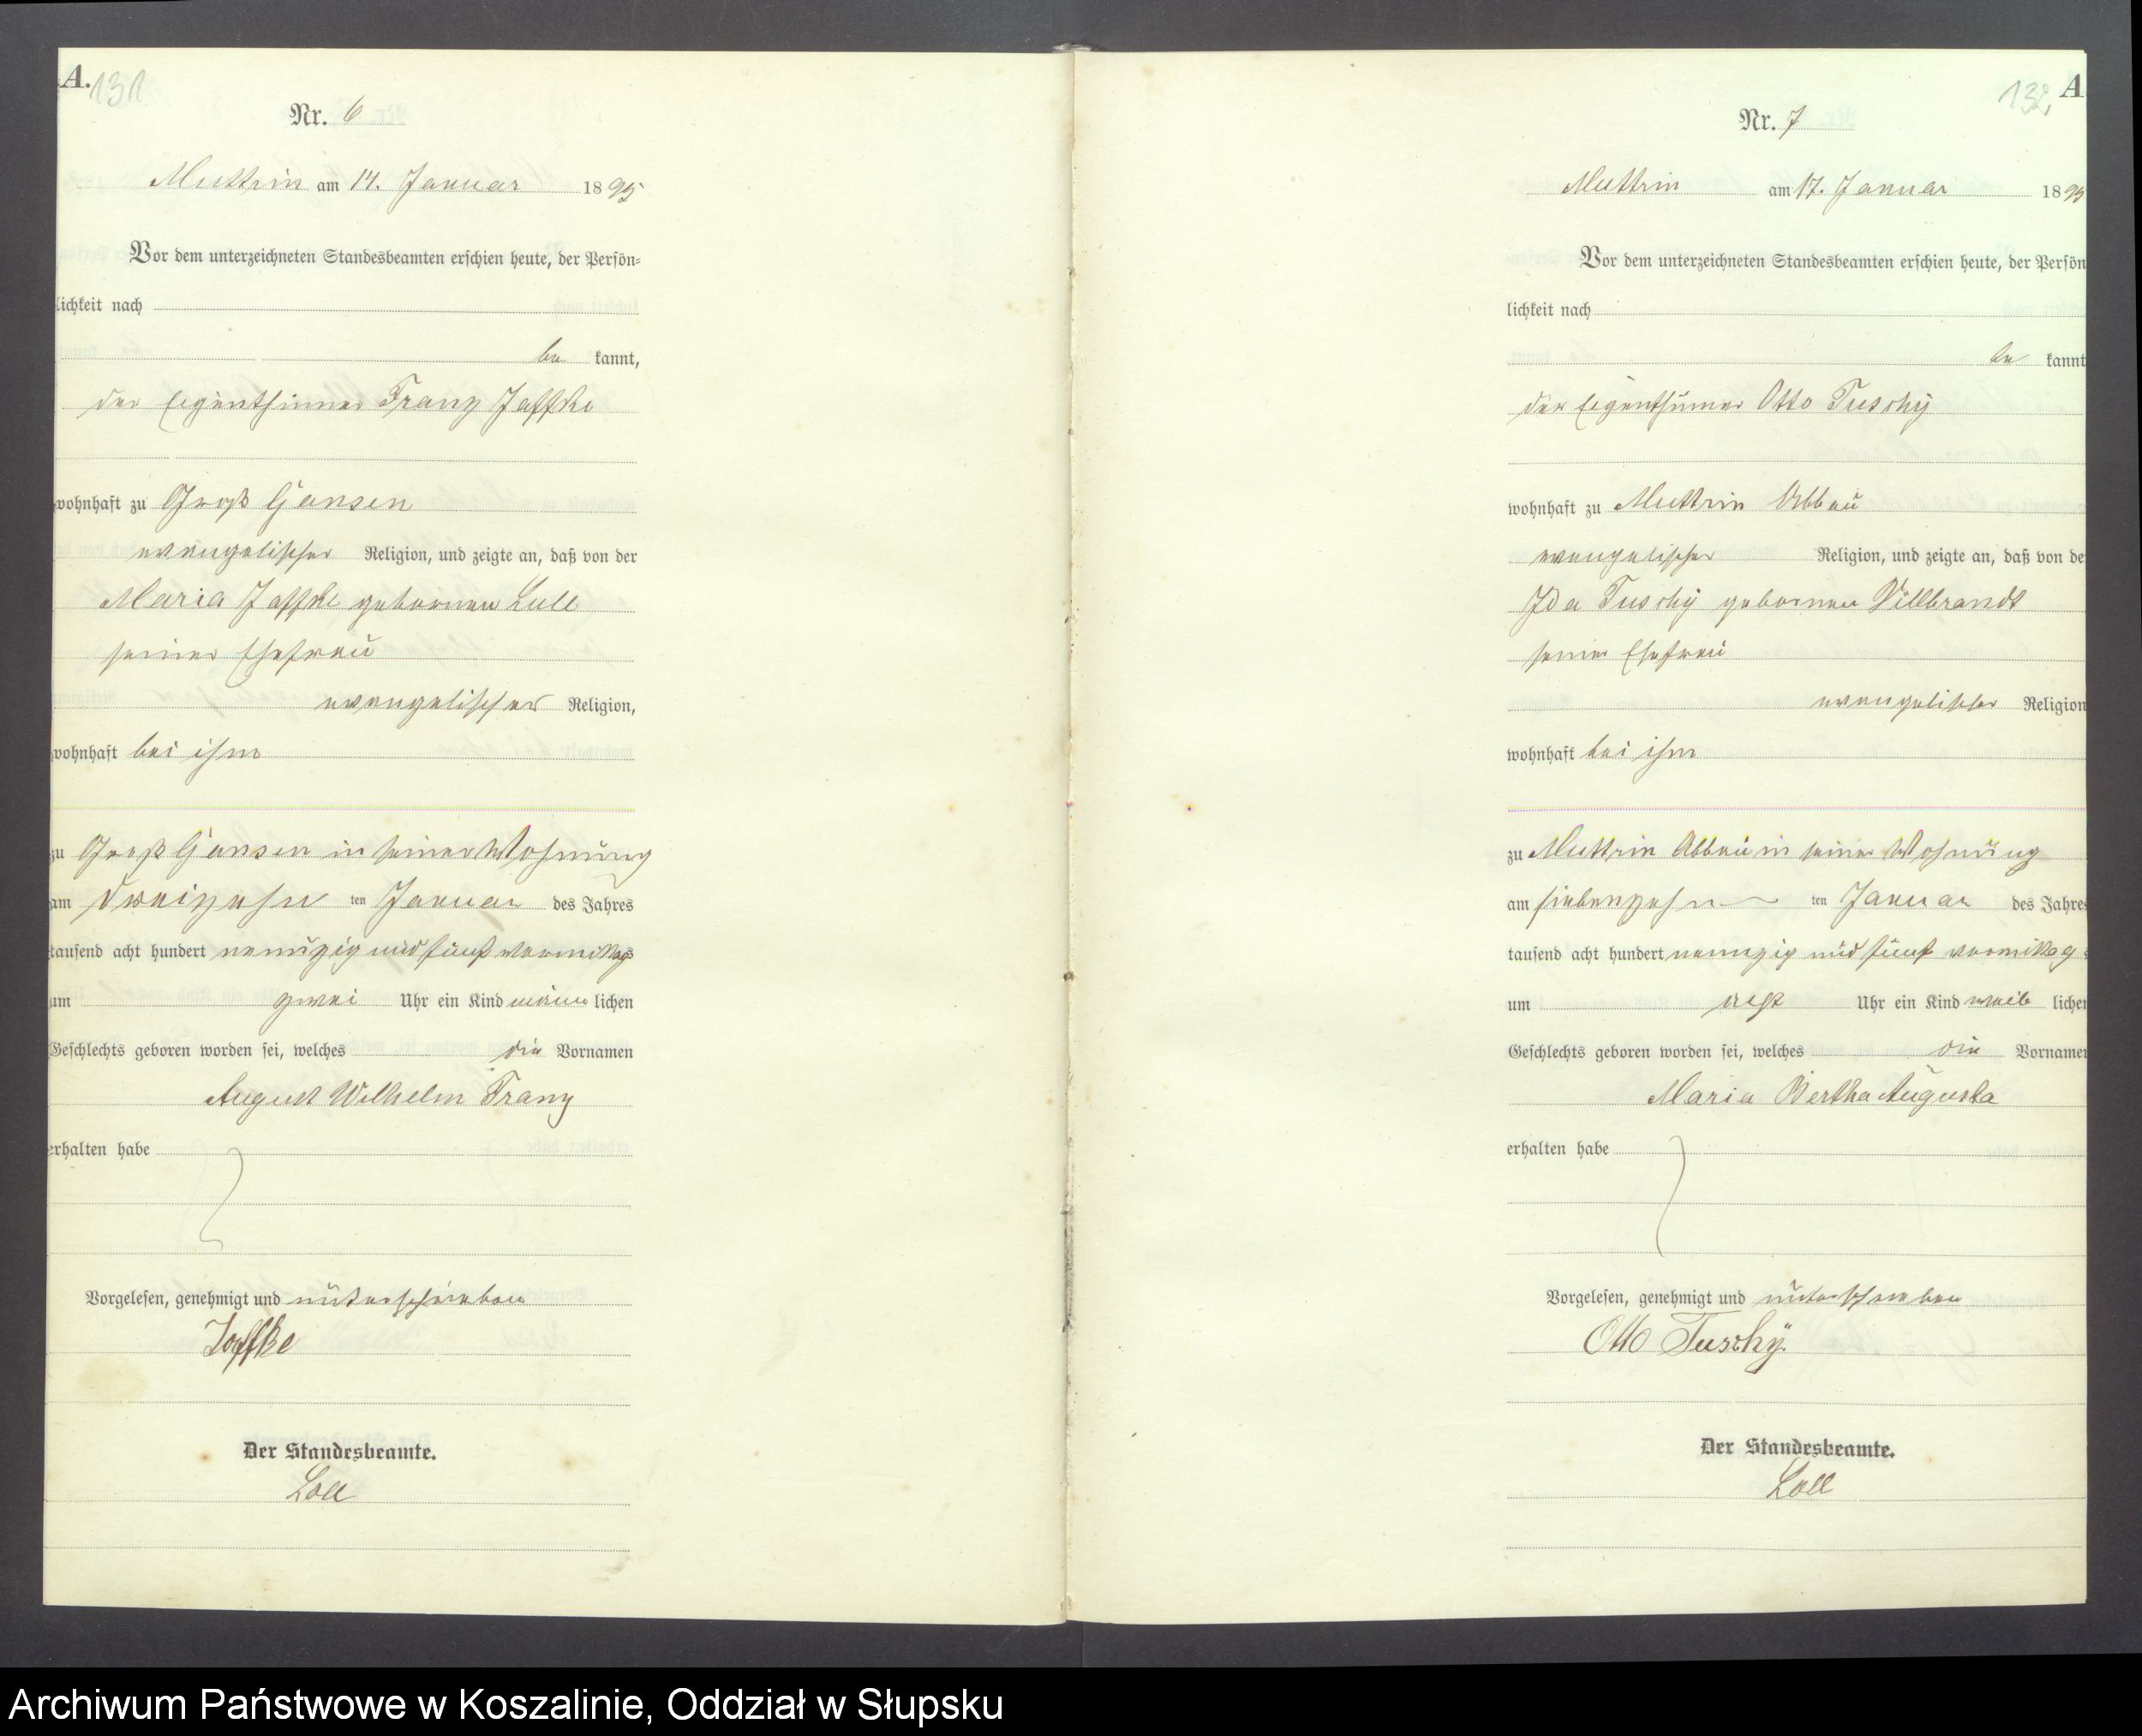 A.
131
Nr. 6
Muttrin am 14. Januar 1895
Vor dem unterzeichneten Standesbeamten erschien heute, der Persön-
lichkeit nach
be kannt,
der Eigenthümer Franz Jaffke
wohnhaft zu Groß Gansen
evangelischer Religion, und zeigte an, daß von der
Maria Jaffke geborenen Loll
seiner Ehefrau
evangelischer Religion,
wohnhaft bei ihm
zu Groß Gansen in seiner Wohnung
am dreizehn ten Januar des Jahres
tausend acht hundert neunzig und fünf vormittags
um zwei Uhr ein Kind männ lichen
Geschlechts geboren worden sei, welches die Vornamen
August Wilhelm Franz
erhalten habe
Vorgelesen, genehmigt und unterschrieben
Jaffke
Der Standesbeamte.
Loll
132
A
Nr. 7
Muttrin am 17. Januar 1895
Vor dem unterzeichneten Standesbeamten erschien heute, der Persön
lichkeit nach
be kannt
der Eigenthümer Otto Tuschy
wohnhaft zu Muttrin Abbau
evangelischer Religion, und zeigte an, daß von de
Ida Tuschy geborenen Villbrandt
seiner Ehefrau
evangelischer Religion
wohnhaft bei ihm
zu Muttrin Abbau in seiner Wohnung
am siebenzehn ten Januar des Jahres
tausend acht hundert neunzig und fünf vormittags
um acht Uhr ein Kind weib lichen
Geschlechts geboren worden sei, welches die Vornamen
Maria Bertha Augusta
erhalten habe
Vorgelesen, genehmigt und unterschrieben
Otto Tuschy.
Der Standesbeamte.
Loll
Archiwum Państwowe w Koszalinie, Oddział w Słupsku